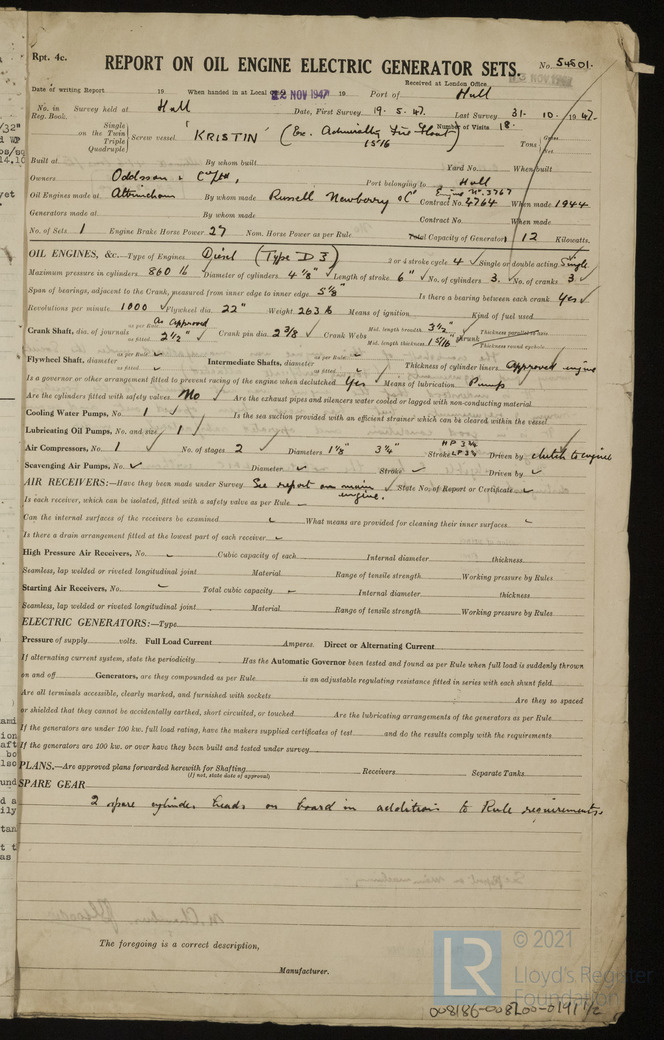 Rpt. 4c.
REPORT ON OIL ENGINE ELECTRIC GENERATOR SETS.
No. 54501.
Received at London Office
Date of writing Report 19 When handed in at Local 22 NOV 1947 19 Port of Hull
No. in Reg. Book. Survey held at Hull Date, First Survey 19. 5. 47. Last Survey 31. 10. 1947.
Number of Visits 18.
Single on the Twin Triple Quadruple Screw vessel "KRISTIN" (Ex. Admiralty Fire Float) 1516 Tons Gross Net
Built at By whom built Yard No. When built
Owners Oddsson & Co Ltd, Port belonging to Hull
Oil Engines made at Altrincham By whom made Russell Newberry & Co Engine No. 3767 Contract No. 4764 When made 1944
Generators made at By whom made Contract No. When made
No. of Sets 1 Engine Brake Horse Power 27 Nom. Horse Power as per Rule Total Capacity of Generators 12 Kilowatts.
OIL ENGINES, &c.—Type of Engines Diesel (Type D3) 2 or 4 stroke cycle 4 Single or double acting Single
Maximum pressure in cylinders 860 lb Diameter of cylinders 4 1/8" Length of stroke 6" No. of cylinders 3. No. of cranks 3.
Span of bearings, adjacent to the Crank, measured from inner edge to inner edge 5 1/8" Is there a bearing between each crank Yes
Revolutions per minute 1000 Flywheel dia. 22" Weight 263 lb Means of ignition Kind of fuel used
Crank Shaft, dia. of journals as per Rule As approved as fitted 2 1/2" Crank pin dia. 2 3/8 Crank Webs Mid. length breadth 3 1/2" Mid. length thickness 15/16" shrunk Thickness parallel to axis Thickness round eyehole
Flywheel Shaft, diameter as per Rule as fitted Intermediate Shafts, diameter as per Rule as fitted Thickness of cylinder liners Approved engine
Is a governor or other arrangement fitted to prevent racing of the engine when declutched Yes Means of lubrication Pump
Are the cylinders fitted with safety valves No Are the exhaust pipes and silencers water cooled or lagged with non-conducting material
Cooling Water Pumps, No. 1 Is the sea suction provided with an efficient strainer which can be cleared within the vessel
Lubricating Oil Pumps, No. and size 1
Air Compressors, No. 1 No. of stages 2 Diameters 1 1/8" 3 3/4" Stroke HP 3 3/4 LP 3 3/4 Driven by clutch to engine
Scavenging Air Pumps, No. Diameter Stroke Driven by
AIR RECEIVERS:—Have they been made under Survey See report on main engine. State No. of Report or Certificate
Is each receiver, which can be isolated, fitted with a safety valve as per Rule
Can the internal surfaces of the receivers be examined What means are provided for cleaning their inner surfaces
Is there a drain arrangement fitted at the lowest part of each receiver
High Pressure Air Receivers, No. Cubic capacity of each Internal diameter thickness
Seamless, lap welded or riveted longitudinal joint Material Range of tensile strength Working pressure by Rules
Starting Air Receivers, No. Total cubic capacity Internal diameter thickness
Seamless, lap welded or riveted longitudinal joint Material Range of tensile strength Working pressure by Rules
ELECTRIC GENERATORS:—Type
Pressure of supply volts. Full Load Current Amperes. Direct or Alternating Current
If alternating current system, state the periodicity Has the Automatic Governor been tested and found as per Rule when full load is suddenly thrown
on and off Generators, are they compounded as per Rule is an adjustable regulating resistance fitted in series with each shunt field
Are all terminals accessible, clearly marked, and furnished with sockets Are they so spaced
or shielded that they cannot be accidentally earthed, short circuited, or touched Are the lubricating arrangements of the generators as per Rule
If the generators are under 100 kw. full load rating, have the makers supplied certificates of test and do the results comply with the requirements
If the generators are 100 kw. or over have they been built and tested under survey
PLANS.—Are approved plans forwarded herewith for Shafting Receivers Separate Tanks
(If not, state date of approval)
SPARE GEAR
2 spare cylinder heads on board in addition to Rule requirements.
The foregoing is a correct description,
Manufacturer.
LR © 2021
Lloyd's Register
Foundation
008186-008200-0191 1/2